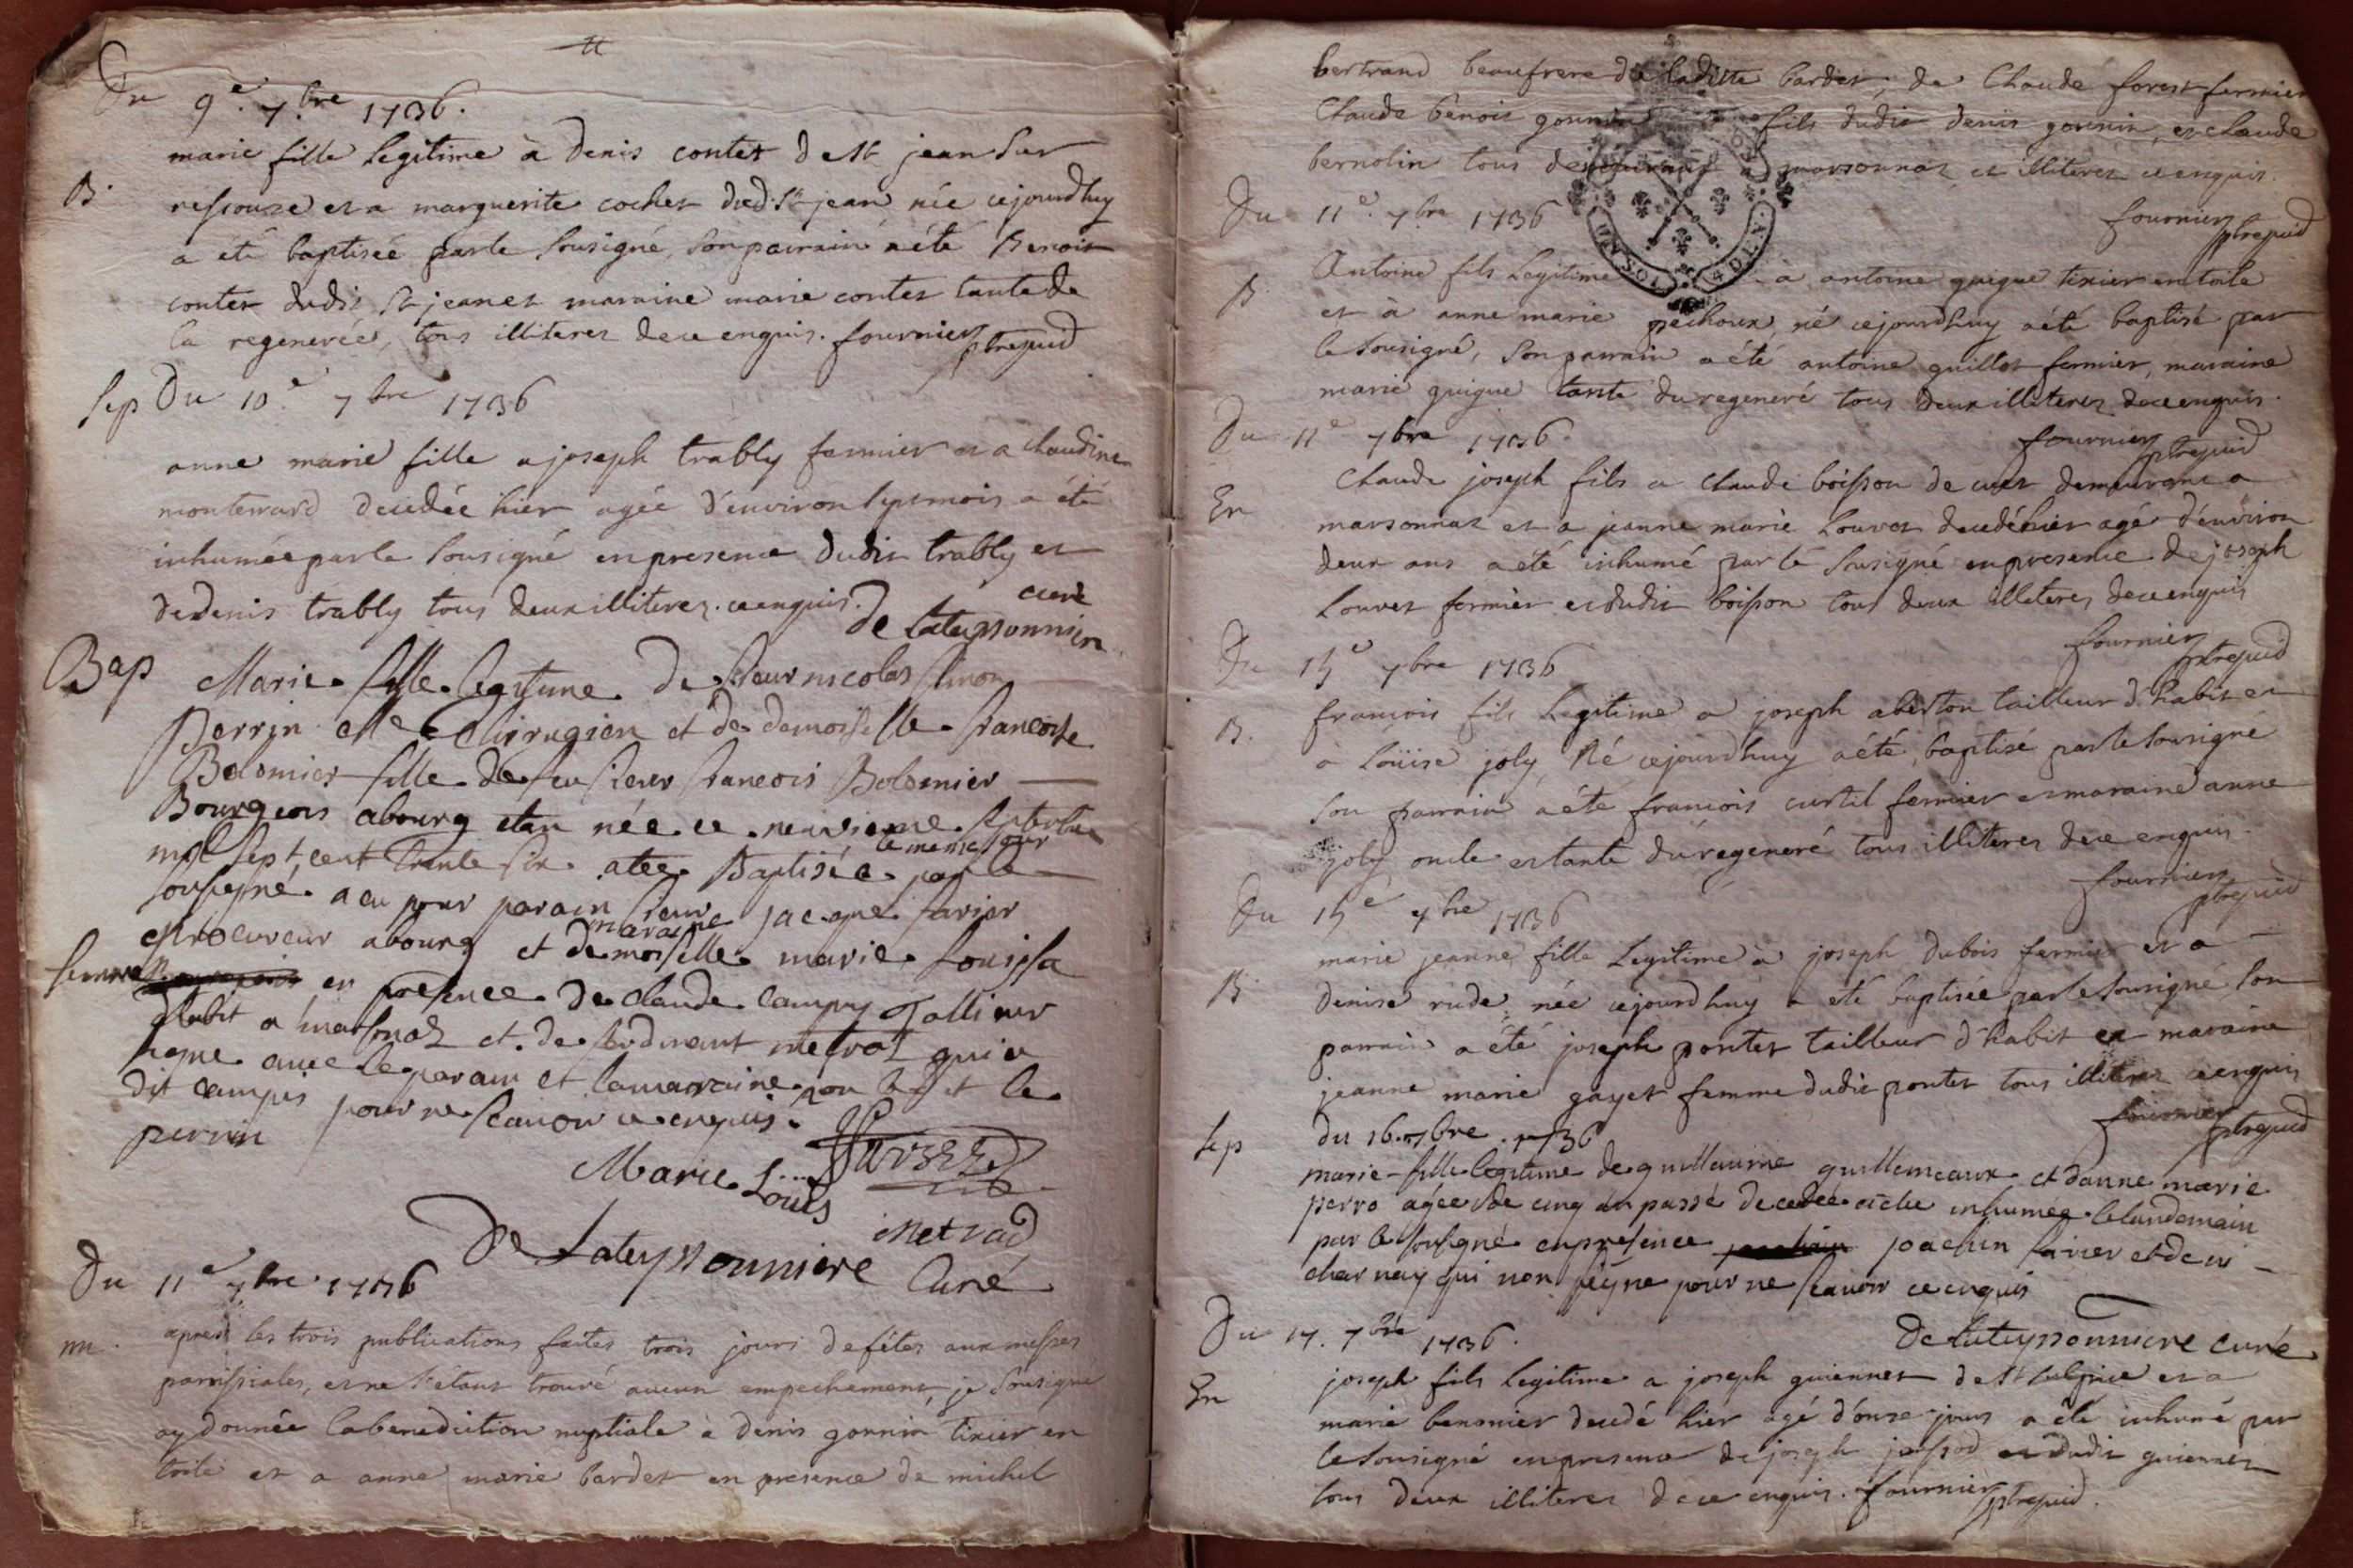 Du 9e 7bre 1736.
marie fille legitime à denis contet de st jean sur
B.
ressouze et a marguerite cochet dud. st jean née cejourdhuy
a été baptisée par le sousigné, son parrain a été Benoit
contet dudit st jean et maraine marie contet tante de
la regenerée, tous illiteres de ce enquis. fournier ptre quid
Sep Du 10e 7bre 1736
anne marie fille a joseph trably fermier et a Claudine
monterrard decedée hier agée d'environ sept mois a été
inhumée par le sousigné en presence dudit trably et
de denis trably tous deux illiteres. ce enquis.
De Lateyssonniere curé
Bap Marie fille legitime de sieur nicolas simon
Perrin Me Chirugien et de demoiselle francoise
Bolomier fille de feu sieur francois Bolomier
Bourgeois abourg etan née ce neuvieme septebre
mil sept cent trente six a tee Baptisée le meme jour par le
sousigné a eu pour parain sieur jacque farier
procureur abourg et demoiselle maraine marie Louise sa
femme en presence de claude campy Tallieur
d'habit a marsonas et de ferdinant metras qui a
signe avec le parain et la marraine non ledit le
dit campis pour ne scavoir ce enquis.
perrin
Marie Louis
metrad
De Lateyssonniere Curé
Du 11e 7bre 1736
m. apres les trois publications faites trois jours de fêtes aux messes
parrissiales, et ne s'étant trouvé aucun empechement, je sousigné
ay donnée la benediction nuptiale a denis gonnin tixier en
toile et a anne marie bardet en presence de michel
bertrand beaufrere de laditte bardet, de Claude forest fermier
Claude benoit gonnin fils dudit denis gonnin, et claude
bernolin tous demeurant a marsonnat et illiteres ce enquis.
fournier ptre quid
Du 11e 7bre 1736
B. Antoine fils legitime à antoine guigue tixier en toile
et à anne marie pechoux né cejourdhuy a été baptisé par
le sousigné, son parrain a été antoine guillot fermier, maraine
marie guigue tante du regeneré tous deux illiteres de ce enquis.
fournier ptre quid
Du 11e 7bre 1736.
En Claude joseph fils a Claude boisson de cuet demeurant a
marsonnat et a jeanne marie Louvet decedé hier agé d'environ
deux ans a été inhumé par le sousigné en presence de joseph
Louvet fermier et dudit boisson tous deux illiteres de ce enquis
fournier ptre quid
Du 15e 7bre 1736
B. francois fils legitime a joseph aberton tailleur d'habit et
a Loüise joly Né cejourdhuy a été baptisé par le sousigné
son parrain a été francois curtil fermier et maraine anne
joly oncle et tante du regeneré tous illiteres de ce enquis.
fournier ptre quid
Du 15e 7bre 1736
marie jeanne fille legitime à joseph dubois fermier et a
B. denise rude, née cejourdhuy a été baptisée par le sousigné, son
parrain a été joseph pontet tailleur d'habit et maraine
jeanne marie gayet femme dudit pontet tous illiteres ce enquis
fournier ptre quid
Sep du 16. 7bre. 1736
marie fille legitime de guillaume guillemeaux et danne marie
perro agée de cinq an passé decedée inhumée le landemain
par le sousigné en presence joachin farier et de
charnay qui non signe pour ne scavoir ce enquis
De Lateyssonniere curé
Du 17. 7bre 1736.
En joseph fils legitime a joseph guiennet de st sulpice et a
marie benonier decedé hier agé d'onze jours a été inhumé par
le sousigné en presence de joseph jossod et dudit guiennet
tous deux illiteres de ce enquis. fournier ptre quid.